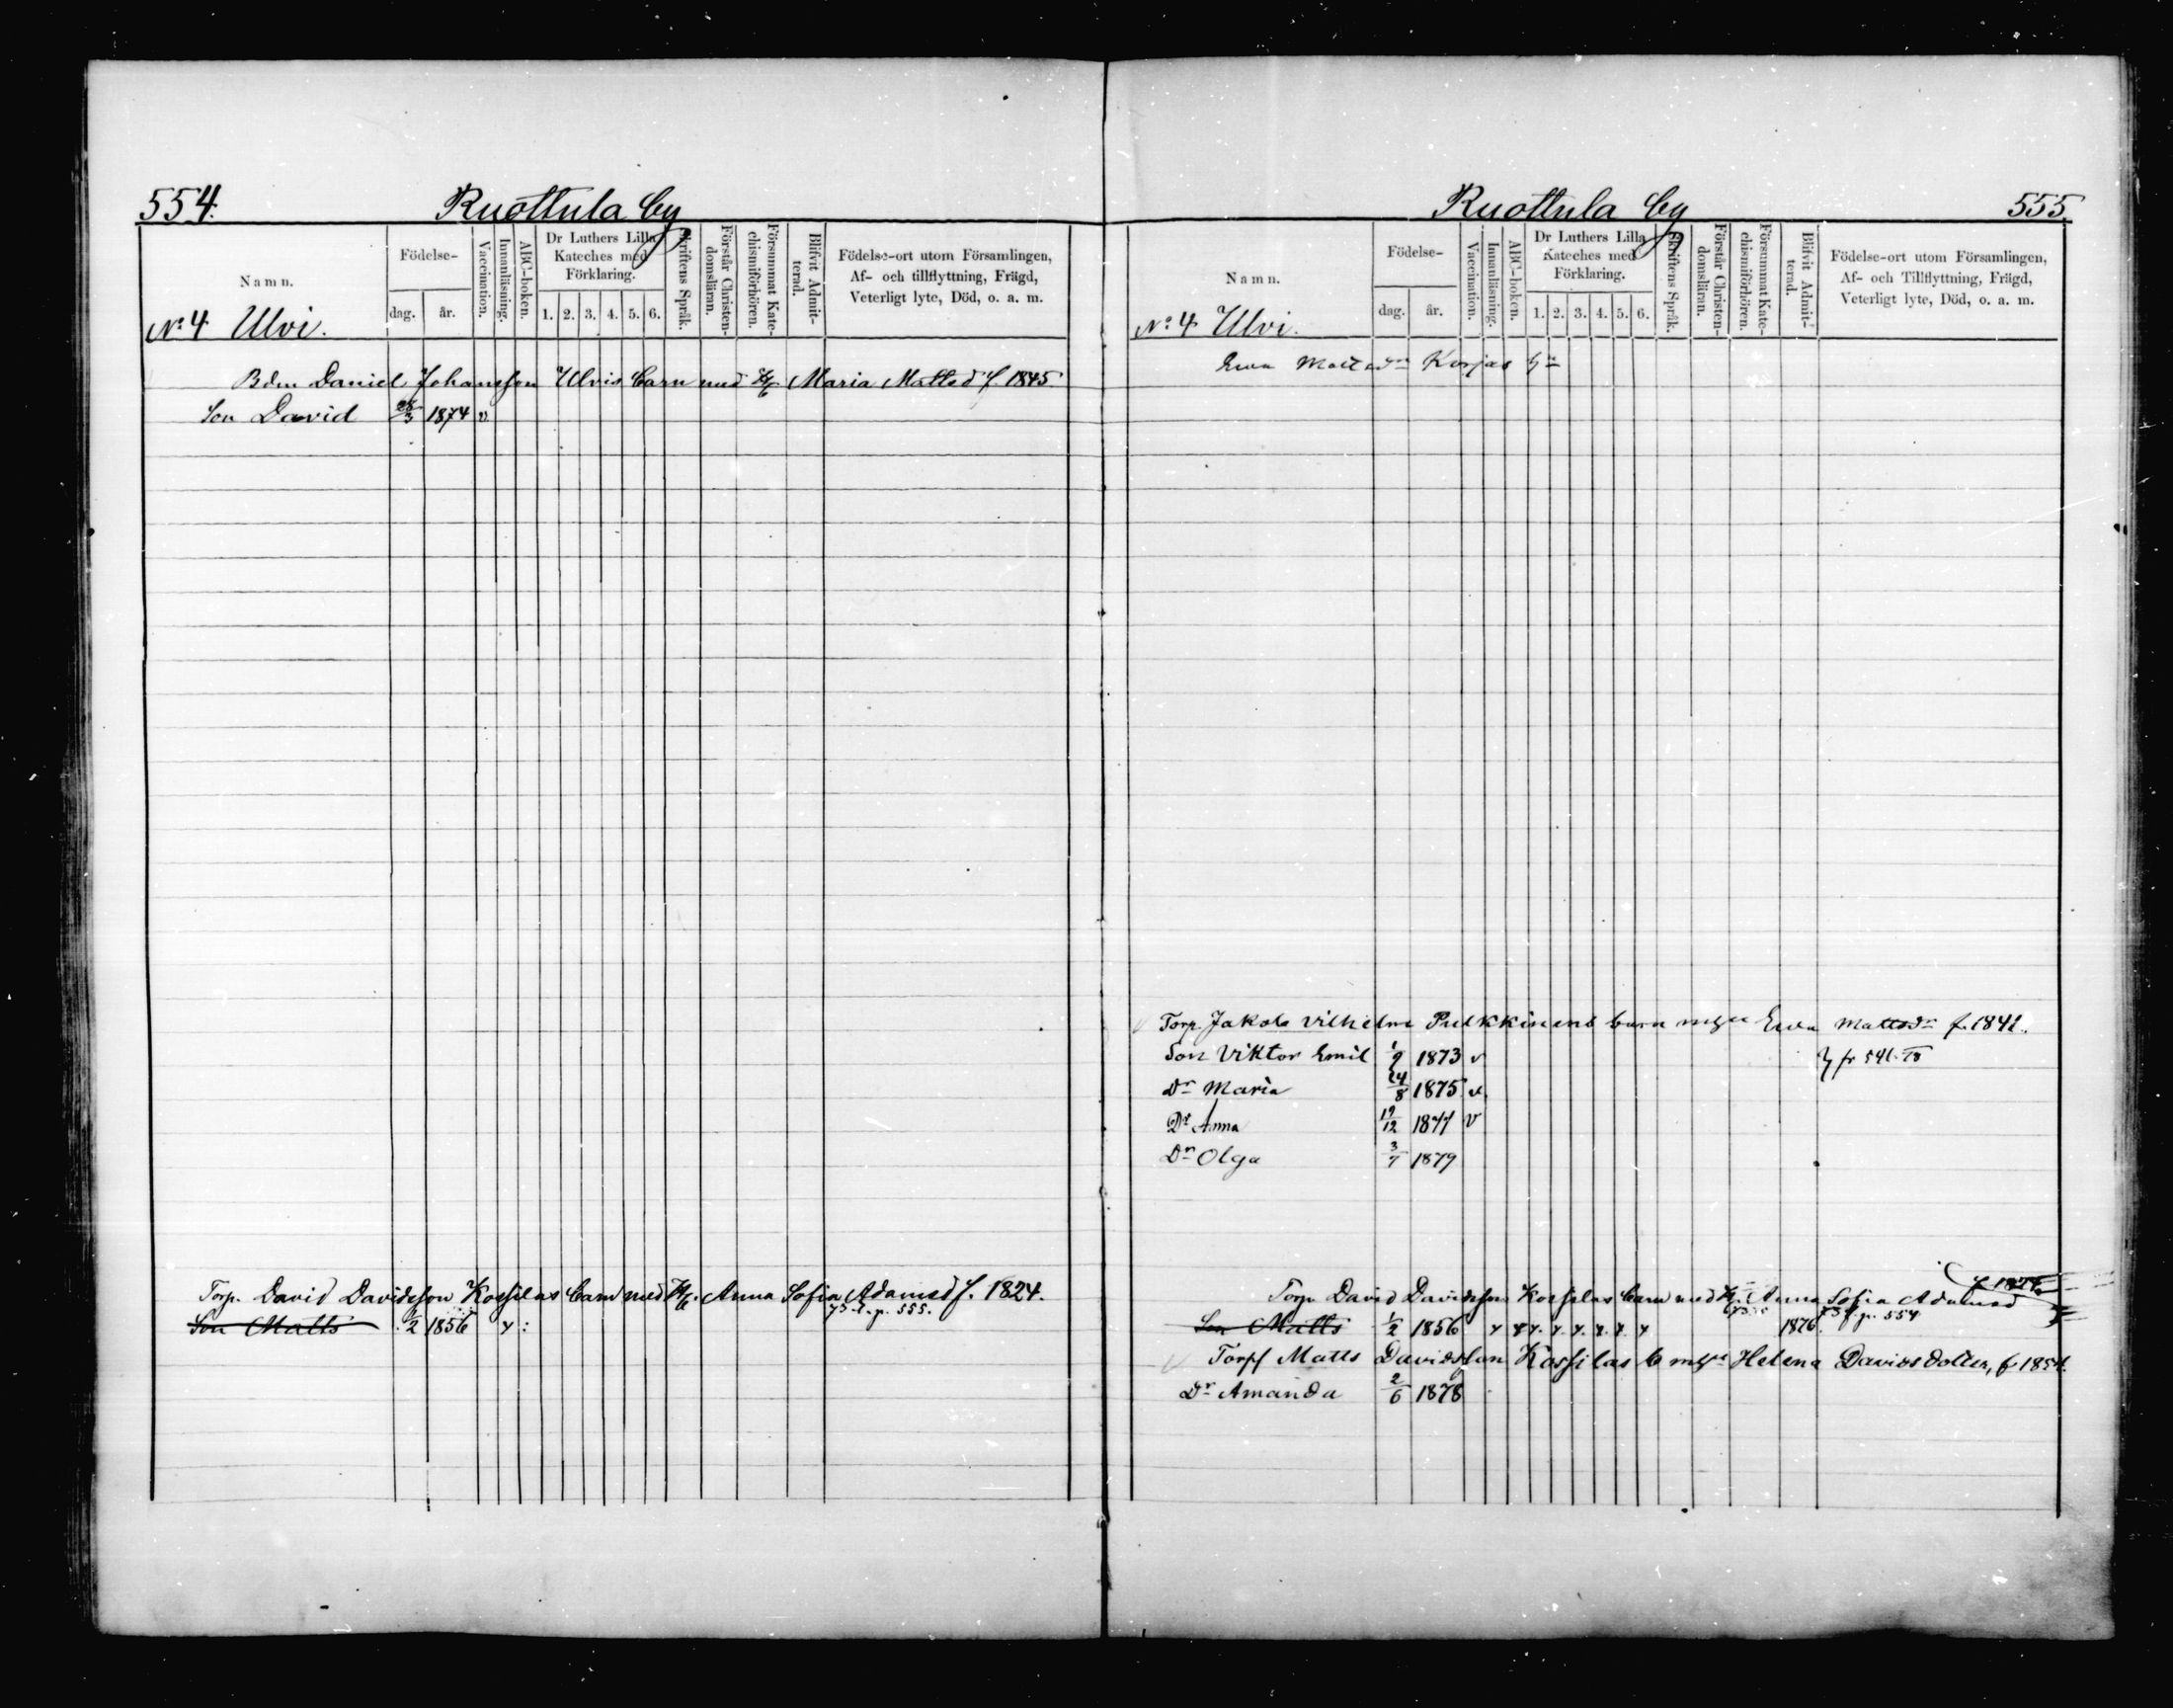 554. Ruottula by
Namn. Födelse- dag. år. Vaccination. Innanläsning. ABC-boken. Dr Luthers Lilla Kateches med Förklaring. 1. 2. 3. 4. 5. 6. Skriftens Språk. Förstår Christen-domsläran. Försummat Kate-chismiförhören. Blifvit Admit-terad. Födelse-ort utom Församlingen, Af- och tillflyttning, Frägd, Veterligt lyte, Död, o. a. m.
No 4 Ulvi.
Bdm Daniel Johansson Ulvis barn med Maria Mattsd f. 1845
Son David 28/3 1874 v
Torp. David Davidsson Kossilas barn med Anna Sofia Adamsd f. 1824.
p. 555.
Son Matts 1/2 1856 x :
Ruottula by 555.
Namn. Födelse- dag. år. Vaccination. Innanläsning. ABC-boken. Dr Luthers Lilla Kateches med Förklaring. 1. 2. 3. 4. 5. 6. Skriftens Språk. Förstår Christen-domsläran. Försummat Kate-chismiförhören. Blifvit Admit-terad. Födelse-ort utom Församlingen, Af- och Tillflyttning, Frägd, Veterligt lyte, Död, o. a. m.
No 4 Ulvi.
Ewa Mattsdr Korjas
Torp. Jakob Vilhelm Pulkkinens barn Ewa Mattsdr f. 1841.
Son Viktor Emil 1/9 1873 v fr 541. 78
Dr Maria 24/8 1875 v
Dr Anna 19/12 1877 v
Dr Olga 3/7 1879
Torp David Davidsson Kossilas barn med Anna Sofia Adamsd f 1824
p. 554
Son Matts 1/2 1856 x x x. x. x. x. x. x 1876.
Torpf Matts Davidsson Kossilas b Helena Davidsdotter, f 1854.
Dr Amanda 2/6 1878